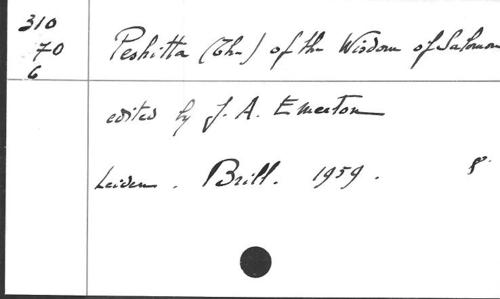 310
70
6
Peshitta (The) of the Wisdom of Salomon
edited by J. A. Emerton
Leiden. Brill. 1959. 8°